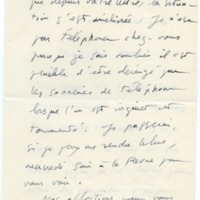 que depuis votre lettre, la situa-
tion s'est améliorée. Je n'ose
pas téléphoner chez-vous
parce que je sais combien il est
pénible d'être dérangé par
les sonneries de téléphone
lorsque l'on est inquiet et
tourmenté. Je passerai,
si je puis me rendre libre,
mercredi soir à la Revue pour
vous voir.